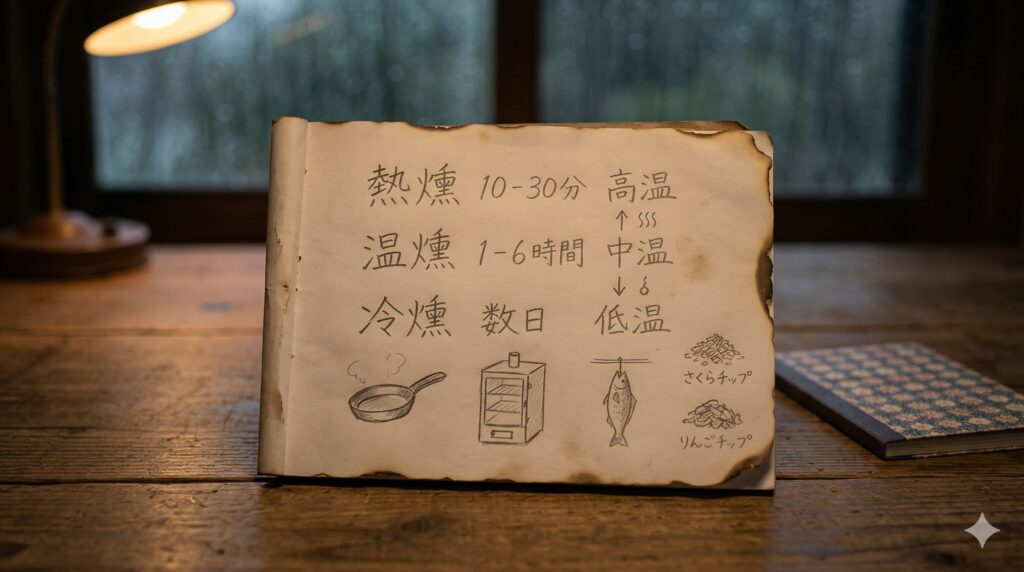 熱燻 10-30分 高温
↑
温燻 1-6時間 中温
↓
冷燻 数日 低温
さくらチップ
りんごチップ